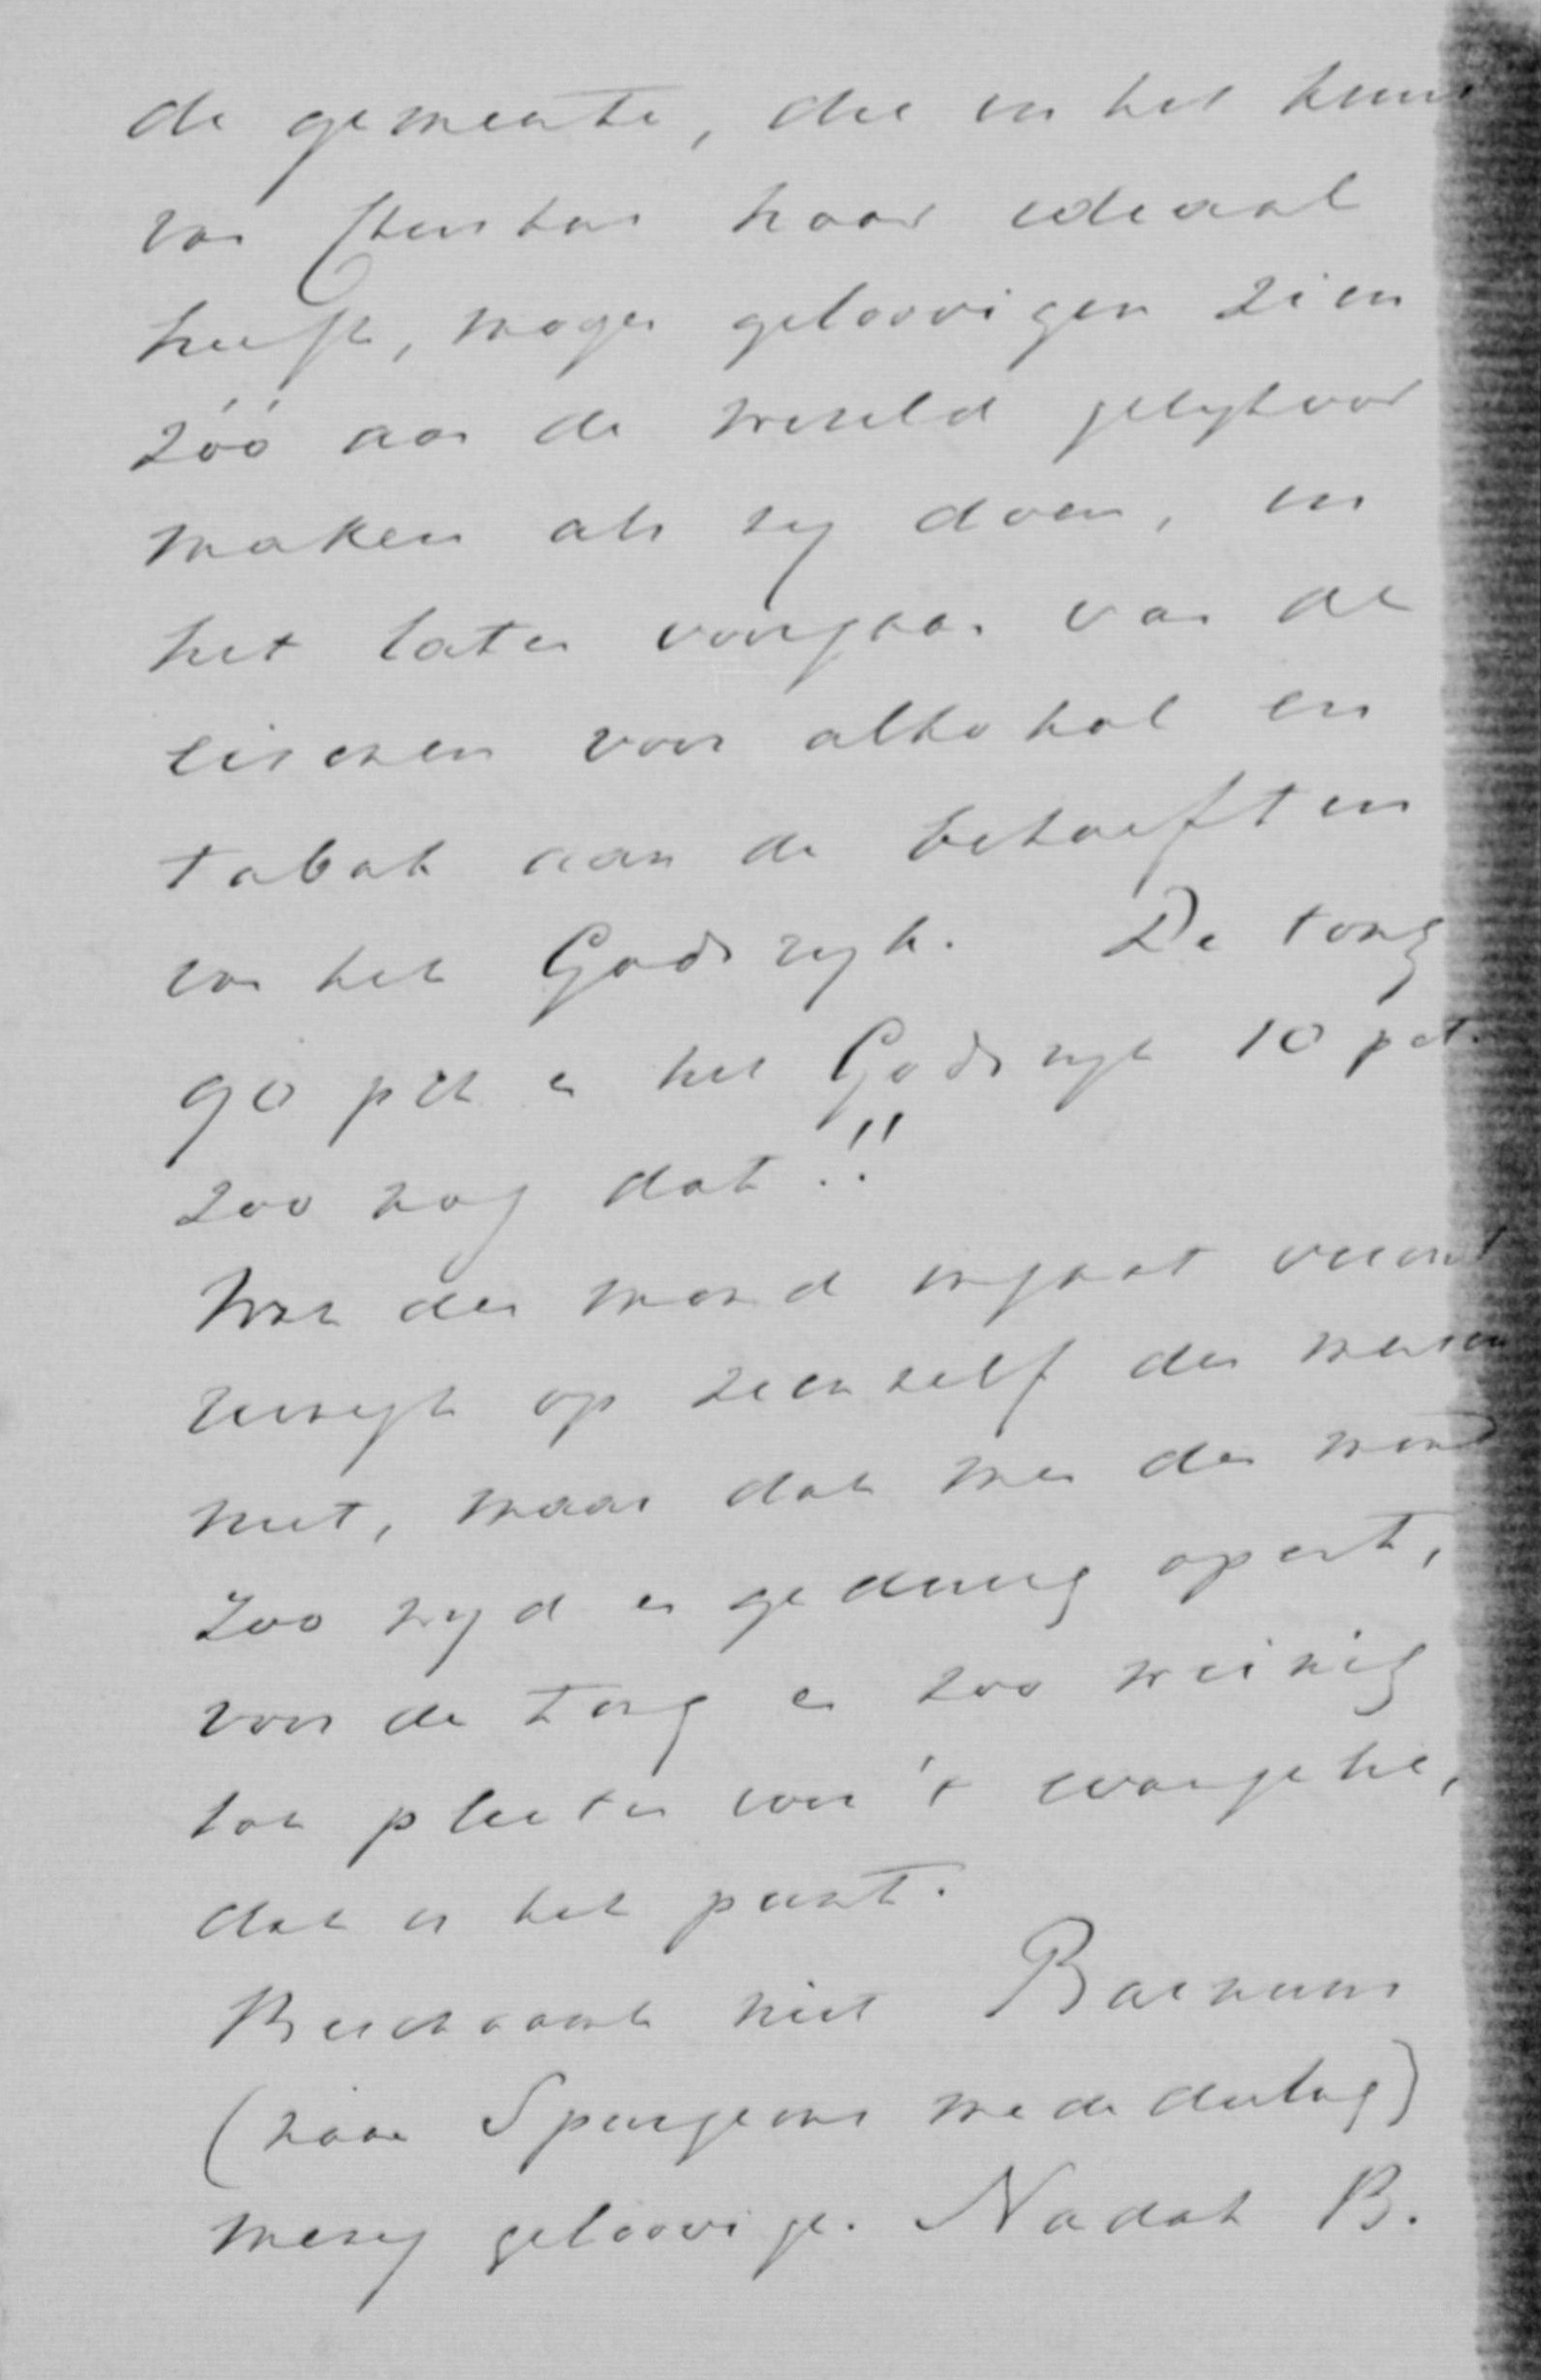 de gemeente, die in het kruis
van Christus haar ideaal
heeft, mogen geloovigen zien
zóó aan de wereld gelijkvor
maken als zij doen, in
het laten voorgaan van de
eischen voor alkohol en
tabak aan de behoeften
van het Godsrijk. De tong
90 pct en het Godsrijk 10 pct.
zoo nog dat!!
Wat den mond ingaat veront
reinigt op zichzelf den mensch
niet, maar dat men den mond
zoo wijd en gedurig opent,
voor de tong en zoo weinig
tot pleiten voor 't evangelie,
dat is het punt.
Beschaamt niet Barnum
(naar Spurgeons mededeeling)
menig geloovige. Nadat B.